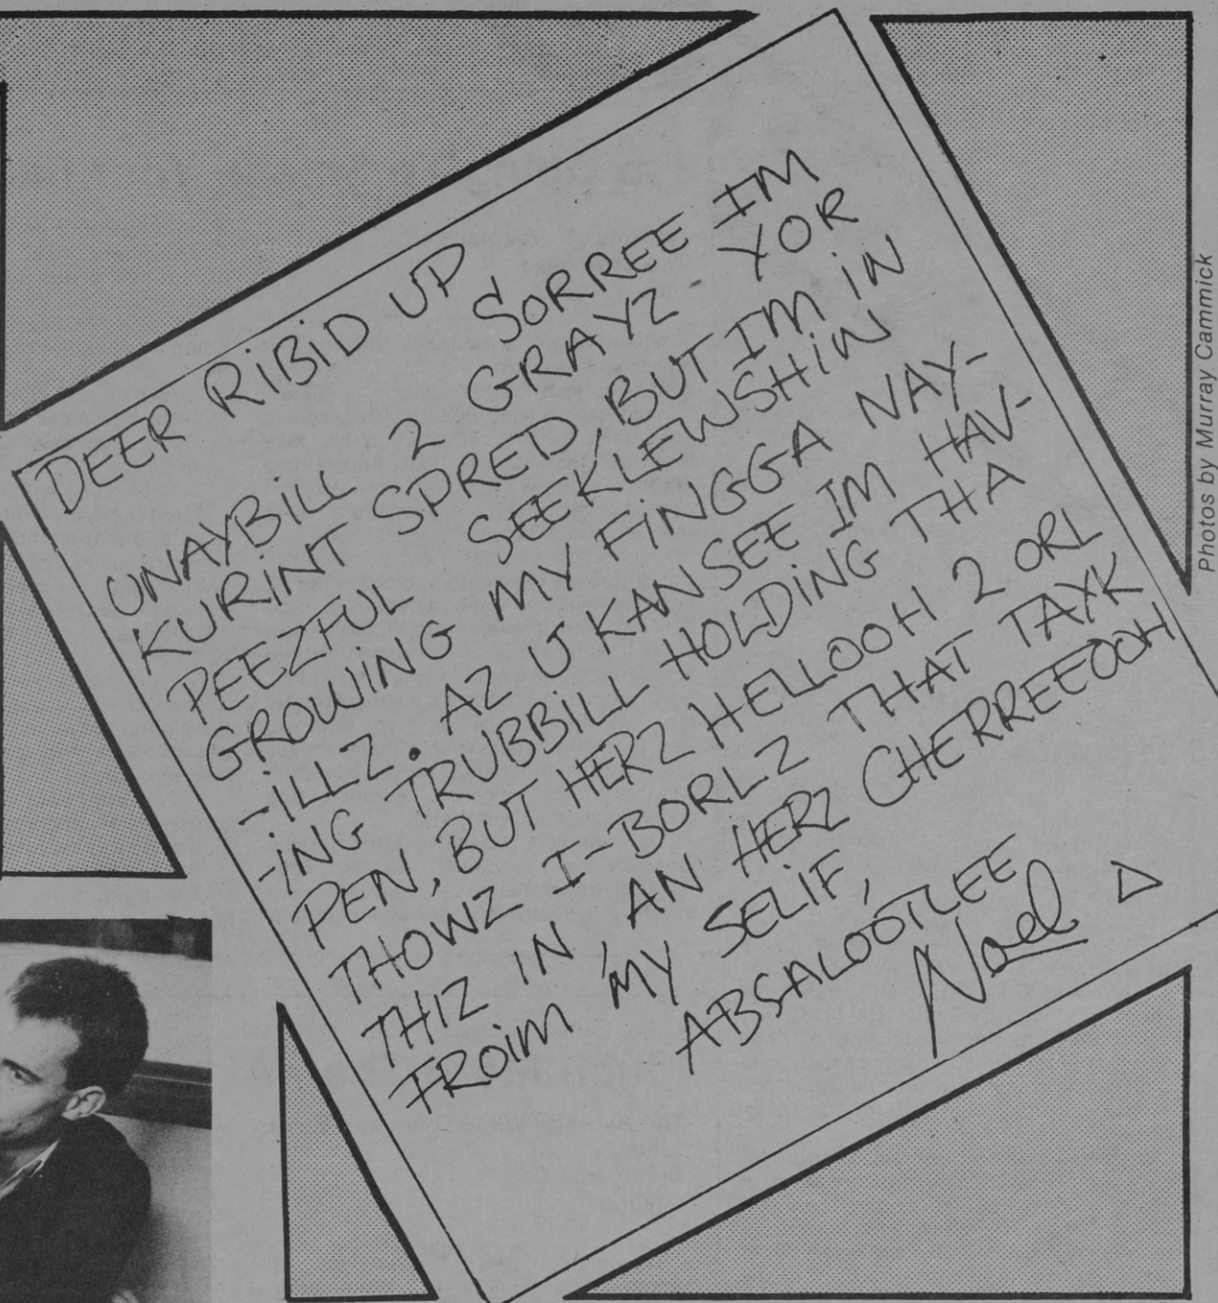 DEER RIBID UP
SORREE IM
UNAYBILL 2 GRAYZ - YOR
KURINT SPRED, BUT IM IN
PEEZFUL SEEKLEWSHIN
GROWING MY FINGGA NAY-
-ILLZ. AZ U KANSEE IM HAV-
-ING TRUBBILL HOLDING THA
PEN, BUT HERZ HELLOOH 2 ORL
THOWZ I-BORLZ THAT TAYK
THIZ IN, AN HERZ CHERREEOOH
FROIM MY SELIF,
ABSALOOTLEE
Noel
Photos by Murray Cammick